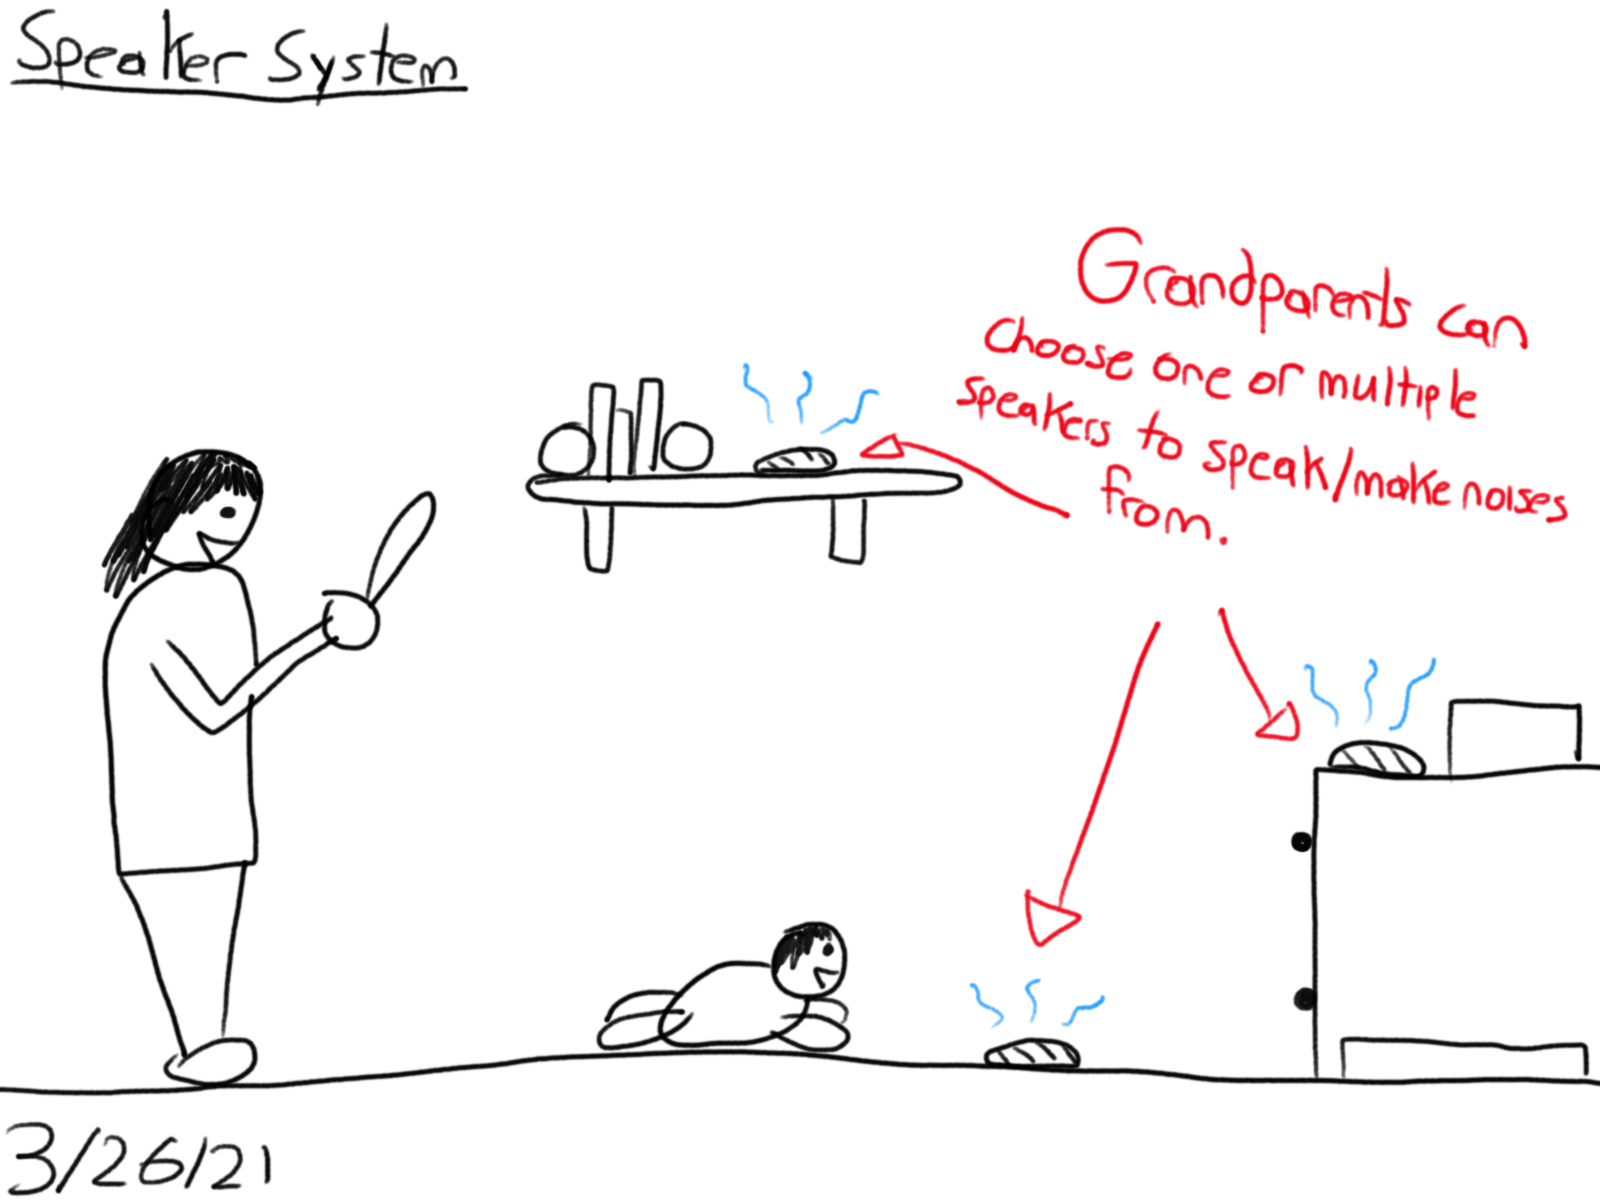 Speaker System
Grandparents can
choose one or multiple
speakers to speak/make noises
from.
3/26/21